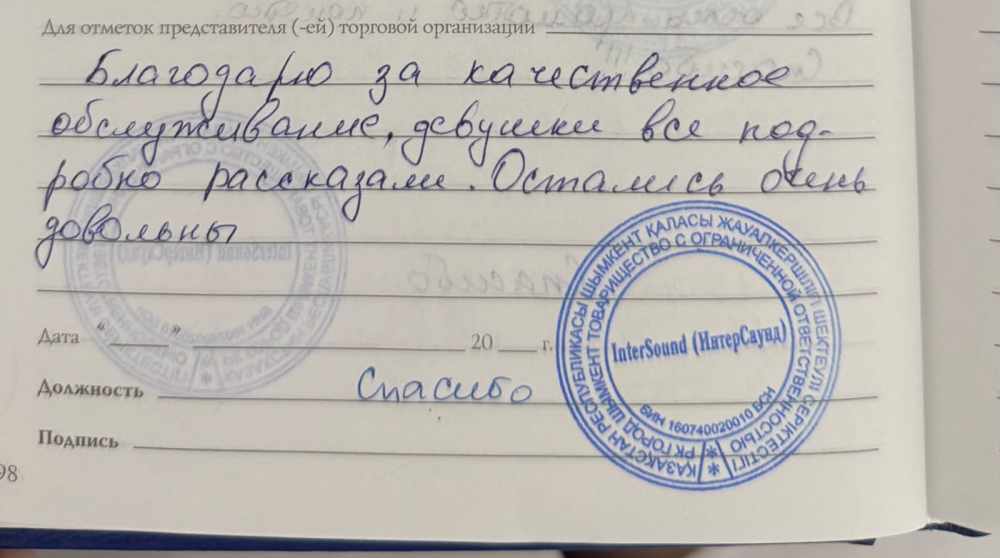 Для отметок представителя (-ей) торговой организации
Благодарю за качественное
обслуживание, девушки все под-
робно рассказали. Остались очень
довольны
Дата "___" ___ 20 ___ г.
Должность Спасибо
Подпись
98
ҚАЗАҚСТАН РЕСПУБЛИКАСЫ ШЫМКЕНТ ҚАЛАСЫ ЖАУАПКЕРШІЛІГІ ШЕКТЕУЛІ СЕРІКТЕСТІГІ
РК ГОРОД ШЫМКЕНТ ТОВАРИЩЕСТВО С ОГРАНИЧЕННОЙ ОТВЕТСТВЕННОСТЬЮ
InterSound (ИнтерСаунд)
БИН 160740020010 БСН